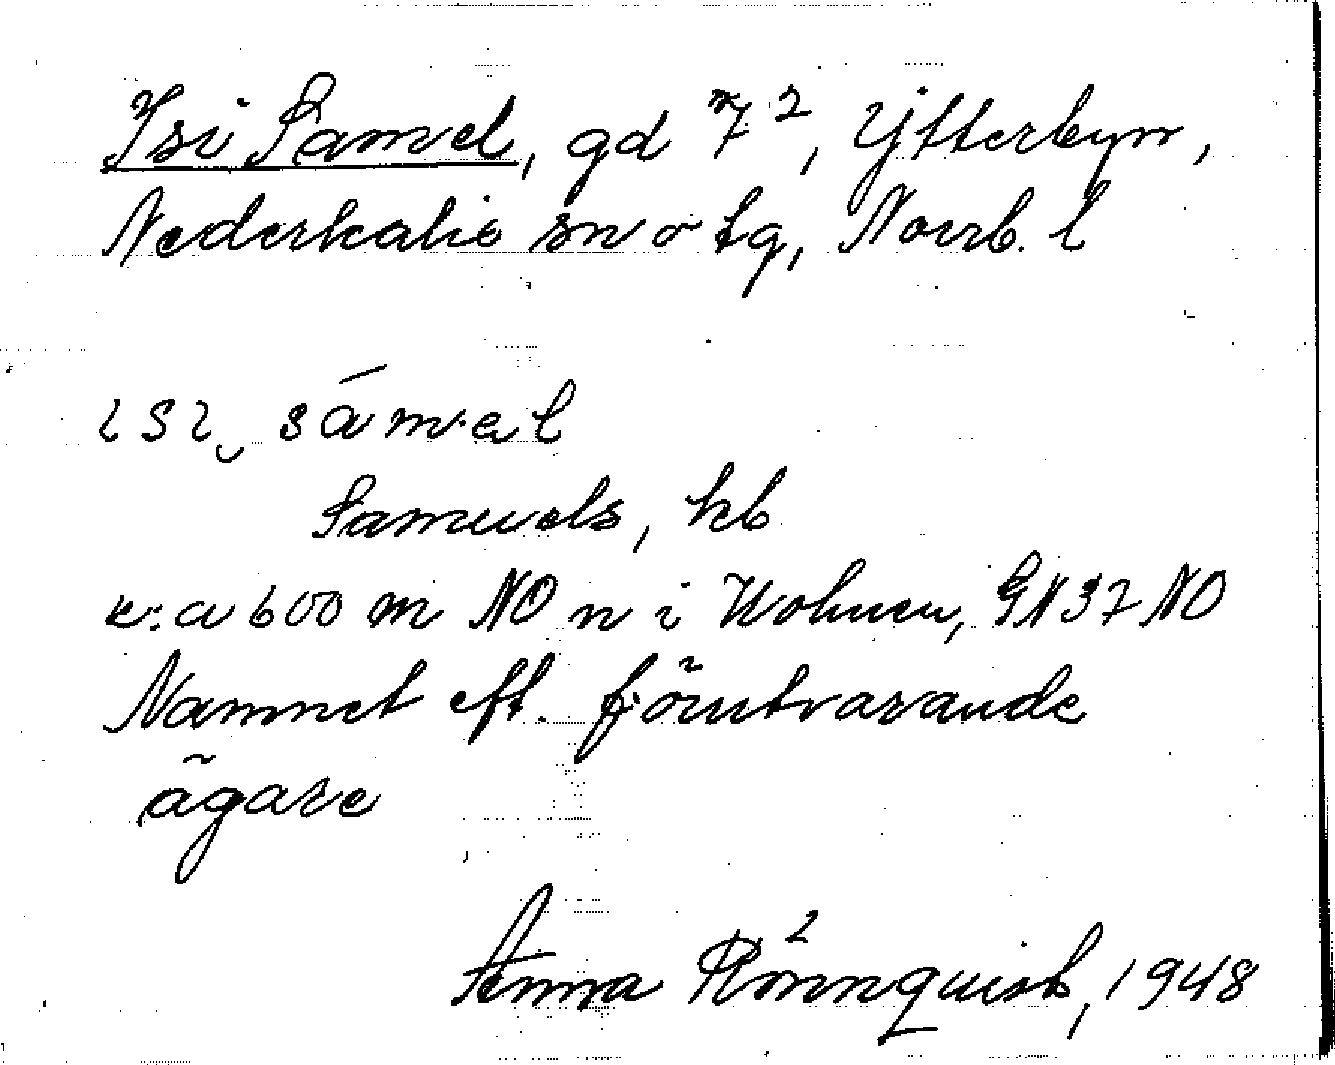 Isi Samel, gd 7², Ytterbyn,
Nederkalix sn o tg, Norrb. l
ısı‿ sámәl
Samuels, kb
c:a 600 m NO n i GN 37 NO
Namnet eft. förutvarande
ägare
Anna Rönnquist, 1948